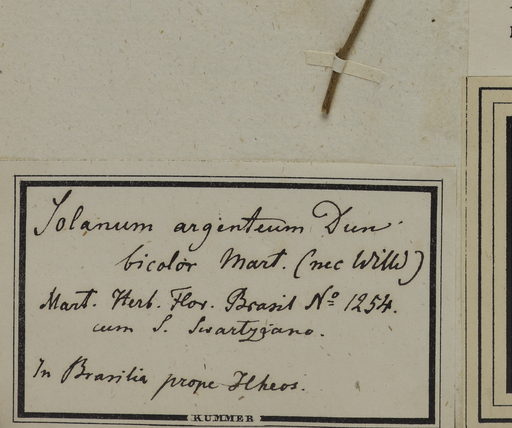 Solanum argenteum Dun.
bicolor Mart. (nec Willd)
Mart. Herb. Flor. Brasil Nº 1254.
cum S. Swartziano.
In Brasilia prope Ilheos.
KUMMER